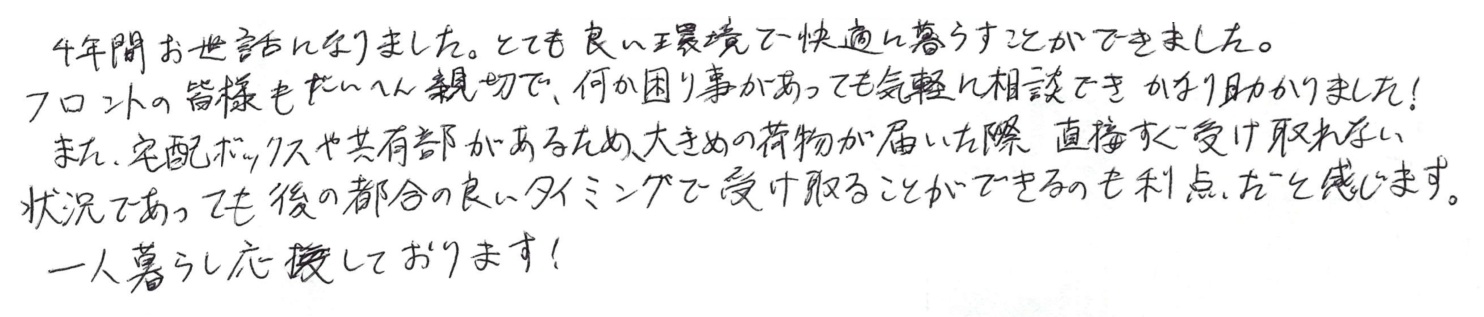 4年間お世話になりました。とても良い環境で快適に暮らすことができました。
フロントの皆様もたいへん親切で、何か困り事があっても気軽に相談できかなり助かりました!
また、宅配ボックスや共有部があるため、大きめの荷物が届いた際 直接すぐ受け取れない
状況であっても後の都合の良いタイミングで受け取ることができるのも利点だと感じます。
一人暮らし応援しております!